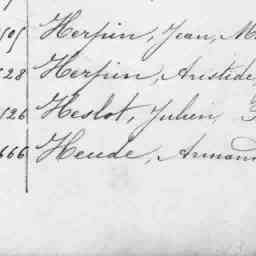 505 Herpin, Jean, M
528 Herpin, Aristide,
526 Heslot, Julien,
666 Heude, Armand